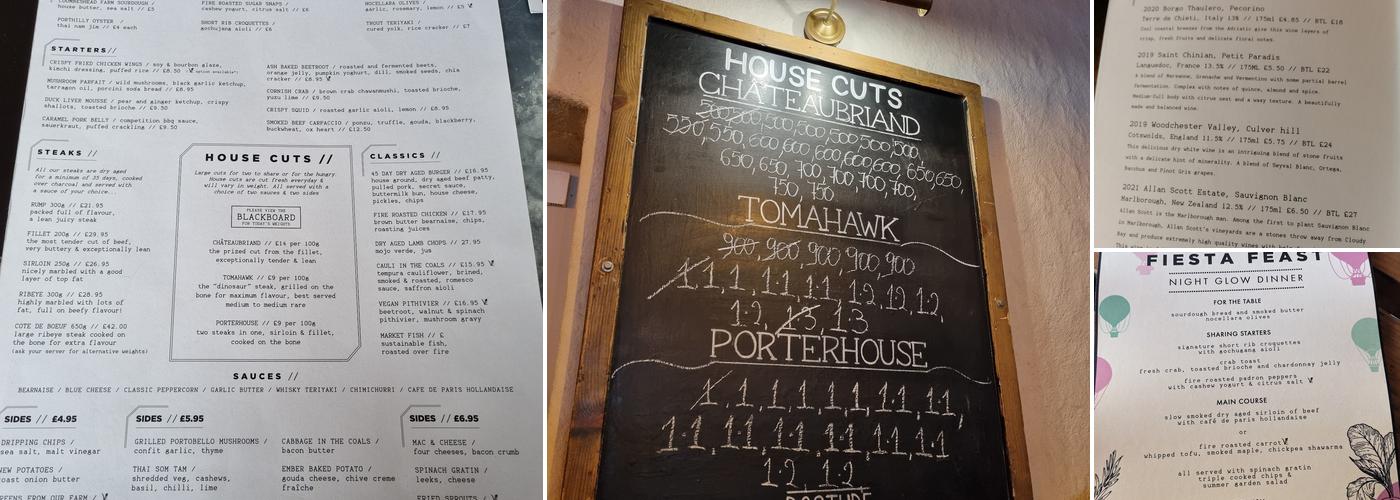 house butter, sea salt // £5
PORTHILLY OYSTER /
thai nam jim // £4 each
FIRE ROASTED SUGAR SNAPS /
cashew yogurt, citrus salt // £6
SHORT RIB CROQUETTES /
gochujang aioli // £6
NOCELLARA OLIVES /
garlic, rosemary, lemon // £5
TROUT TERIYAKI /
cured yolk, rice cracker // £7
STARTERS//
CRISPY FRIED CHICKEN WINGS / soy & bourbon glaze,
kimchi dressing, puffed rice // £8.50
MUSHROOM PARFAIT / wild mushrooms, black garlic ketchup,
tarragon oil, porcini soda bread // £8.95
DUCK LIVER MOUSSE / pear and ginger ketchup, crispy
shallots, toasted brioche // £9.50
CARAMEL PORK BELLY / competition bbq sauce,
sauerkraut, puffed crackling // £9.50
ASH BAKED BEETROOT / roasted and fermented beets,
orange jelly, pumpkin yoghurt, dill, smoked seeds, chia
cracker // £6.95
CORNISH CRAB / brown crab chawanmushi, toasted brioche,
yuzu lime // £9.50
CRISPY SQUID / roasted garlic aioli, lemon // £8.95
SMOKED BEEF CARPACCIO / ponzu, truffle, gouda, blackberry,
buckwheat, ox heart // £12.50
STEAKS //
All our steaks are dry aged
for a minimum of 35 days, cooked
over charcoal and served with
a sauce of your choice...
RUMP 300g // £21.95
packed full of flavour,
a lean juicy steak
FILLET 200g // £29.95
the most tender cut of beef,
very buttery & exceptionally lean
SIRLOIN 250g // £26.95
nicely marbled with a good
layer of top fat
RIBEYE 300g // £28.95
highly marbled with lots of
fat, full on beefy flavour!
COTE DE BOEUF 650g // £42.00
large ribeye steak cooked on
the bone for extra flavour
(ask your server for alternative weights)
HOUSE CUTS //
Large cuts for two to share or for the hungry.
House cuts are cut fresh everyday &
will vary in weight. All served with a
choice of two sauces & two sides
PLEASE VIEW THE
BLACKBOARD
FOR TODAY'S WEIGHTS
CHÂTEAUBRIAND // £14 per 100g
the prized cut from the fillet,
exceptionally tender & lean
TOMAHAWK // £9 per 100g
the "dinosaur" steak, grilled on the
bone for maximum flavour, best served
medium to medium rare
PORTERHOUSE // £9 per 100g
two steaks in one, sirloin & fillet,
cooked on the bone
CLASSICS //
45 DAY DRY AGED BURGER // £16.95
house ground, dry aged beef patty,
pulled pork, secret sauce,
buttermilk bun, house cheese,
pickles, chips
FIRE ROASTED CHICKEN // £17.95
brown butter bearnaise, chips,
roasting juices
DRY AGED LAMB CHOPS // 27.95
mojo verde, jus
CAULI IN THE COALS // £15.95
tempura cauliflower, brined,
smoked & roasted, romesco
sauce, saffron aioli
VEGAN PITHIVIER // £16.95
beetroot, walnut & spinach
pithivier, mushroom gravy
MARKET FISH // £
sustainable fish,
roasted over fire
SAUCES //
BEARNAISE / BLUE CHEESE / CLASSIC PEPPERCORN / GARLIC BUTTER / WHISKY TERIYAKI / CHIMICHURRI / CAFE DE PARIS HOLLANDAISE
SIDES // £4.95
DRIPPING CHIPS /
sea salt, malt vinegar
NEW POTATOES /
roast onion butter
SIDES // £5.95
GRILLED PORTOBELLO MUSHROOMS /
confit garlic, thyme
THAI SOM TAM /
shredded veg, cashews,
basil, chilli, lime
CABBAGE IN THE COALS /
bacon butter
EMBER BAKED POTATO /
gouda cheese, chive creme
fraîche
SIDES // £6.95
MAC & CHEESE /
four cheeses, bacon crumb
SPINACH GRATIN /
leeks, cheese
FRIED SPROUTS /
HOUSE CUTS
CHATEAUBRIAND
500,500,500,500,500,500,
550,550,600,600,600,600,600,650,650,
650,650,700,700,700,
750,750
TOMAHAWK
900,900,900,900,900
1·1,1·1,1·1,1·1,1·2,1·2,1·2,
1·2,1·3,1·3
PORTERHOUSE
1,1,1,1,1,1·1,1·1,
1·1,1·1,1·1,1·1,1·1,1·1,1·1
1·2,1·2
2020 Borgo Thaulero, Pecorino
Terre de Chieti, Italy 13% // 175ml £4.85 // BTL £18
Cool coastal breezes from the Adriatic give this wine layers of
crisp, fresh fruits and delicate floral notes.
2019 Saint Chinian, Petit Paradis
Languedoc, France 13.5% // 175ML £5.50 // BTL £22
A blend of Marsanne, Grenache and Vermentino with some partial barrel
fermentation. Complex with notes of quince, almond and spice.
Medium-full body with citrus zest and a waxy texture. A beautifully
made and balanced wine.
2019 Woodchester Valley, Culver hill
Cotswolds, England 11.5% // 175ml £5.75 // BTL £24
This delicious dry white wine is an intriguing blend of stone fruits
with a delicate hint of minerality. A blend of Seyval Blanc, Ortega,
Bacchus and Pinot Gris grapes.
2021 Allan Scott Estate, Sauvignon Blanc
Marlborough, New Zealand 12.5% // 175ml £6.50 // BTL £27
Allan Scott is the Marlborough man. Among the first to plant Sauvignon Blanc
in Marlborough, Allan Scott's vineyards are a stones throw away from Cloudy
Bay and produce extremely high quality wines with
FIESTA FEAST
NIGHT GLOW DINNER
FOR THE TABLE
sourdough bread and smoked butter
nocellara olives
SHARING STARTERS
signature short rib croquettes
with gochugang aioli
crab toast
fresh crab, toasted brioche and chardonnay jelly
fire roasted padron peppers
with cashew yogurt & citrus salt
MAIN COURSE
slow smoked dry aged sirloin of beef
with café de paris hollandaise
or
fire roasted carrot
whipped tofu, smoked maple, chickpea shawarma
all served with spinach gratin
triple cooked chips &
summer garden salad